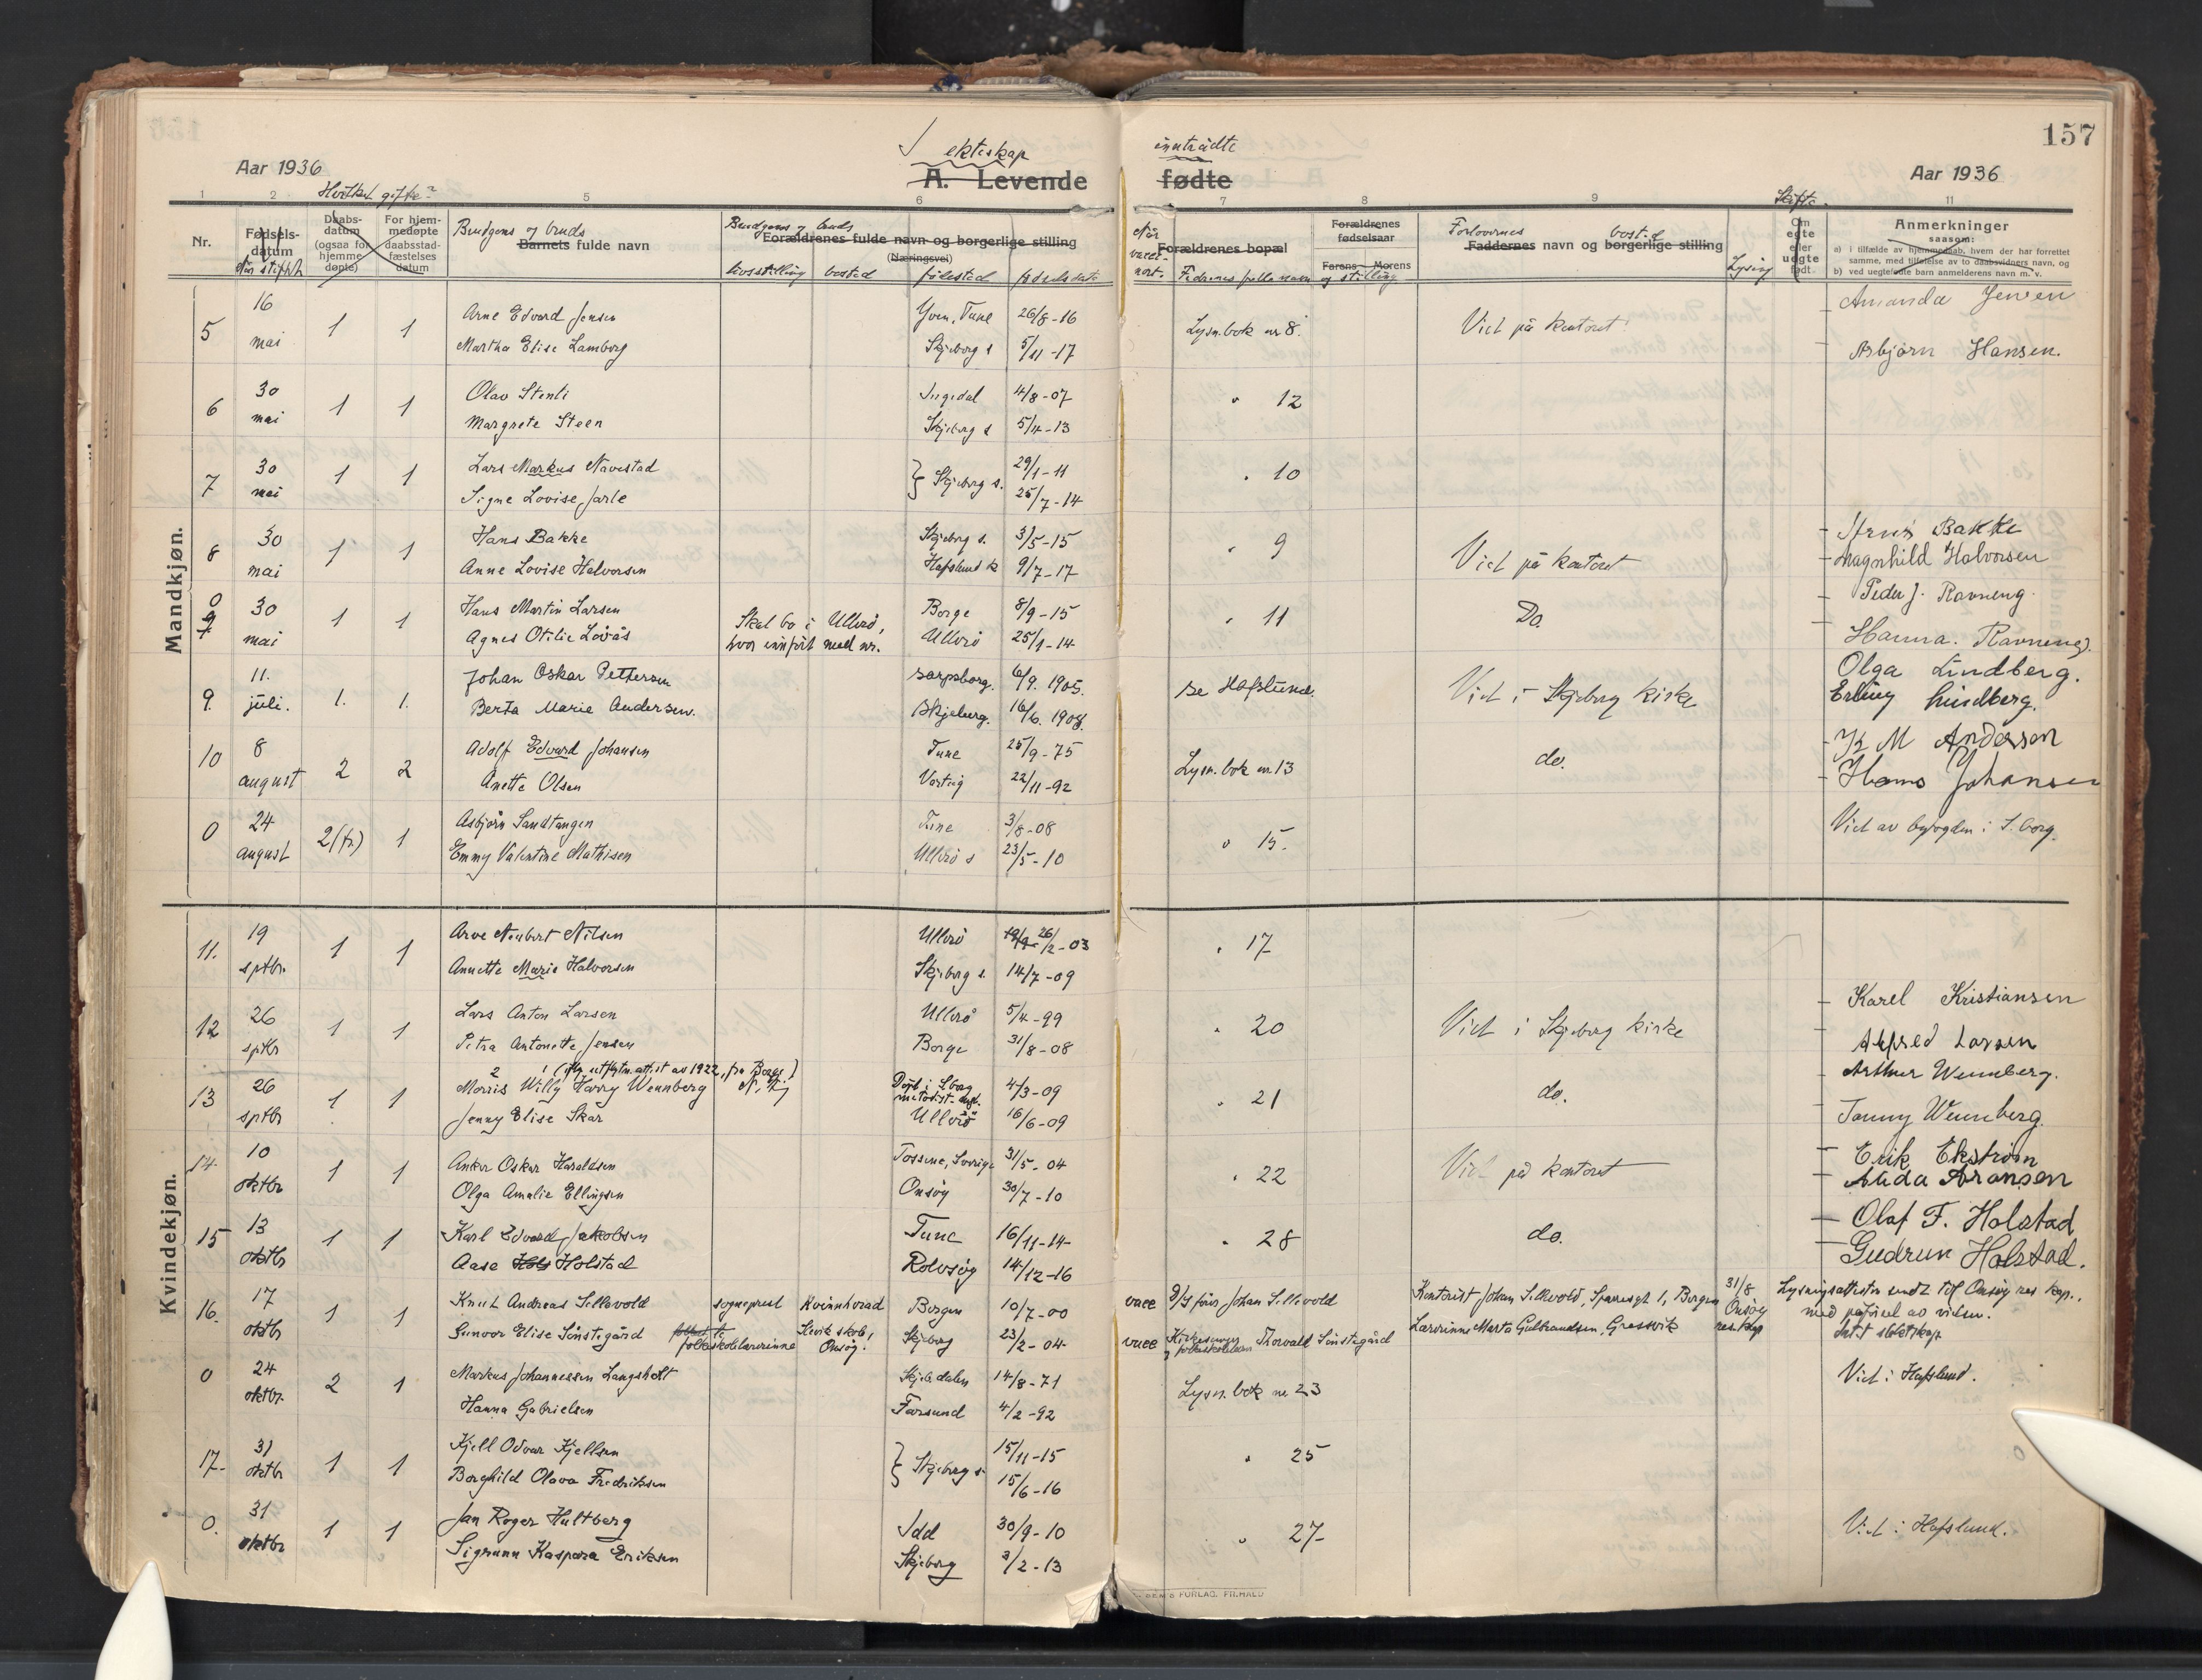 157
I ekteskap inntrådte
Aar 1936
A. Levende fødte
Aar 1936
Hvilket gifte?
Skifte.
1 2 5 6 7 8 9 11
Nr.
Fødsels-datum
Når stiftet
Daabs-datum (ogsaa for hjemme døpte)
For hjem-medøpte daabsstad-fæstelses datum
Brudgoms og bruds
Barnets fulde navn
Brudgoms og bruds
Forældrenes fulde navn og borgerlige stilling
(Næringsvei)
livsstilling bosted fødested fødselsdato
Når vaccinert.
Forældrenes bopæl
Fedrenes fulle navn og stilling
Forældrenes fødselsaar
Farens Morens
Forlovernes bosted
Faddernes navn og borgerlige stilling
Lysing
Om egte eller uegte født
Anmerkninger
saasom:
a) i tilfælde av hjemmedaab, hvem der har forrettet samme, med tilføielse av to daabsvidners navn, og
b) ved uegtefødte barn anmelderens navn m. v.
Mandkjøn.
5 16 mai 1 1 Arne Edvard Jensen Yven, Tune 26/8-16 Lysn.bok nr 8. Viet på kontoret Amanda Jensen
Martha Elise Lamberg Skjeberg s 5/11-17 Asbjørn Hansen.
6 30 mai 1 1 Olav Stenli Ingedal 4/8-07 " 12
Margrete Steen Skjeberg s 5/4-13
7 30 mai 1 1 Lars Markus Navestad } Skjeberg s. 29/1-11 " 10
Signe Lovise Jarle 25/7-14
8 30 mai 1 1 Hans Bakke Skjeberg s. 3/5-15 " 9 Viet på kontoret Bakke
Anne Lovise Halvorsen Hafslund k 9/7-17 Magnhild Halvorsen
0 9 30 mai 1 1 Hans Martin Larsen Skal bo i Ullerö, Borge 8/9-15 " 11 Do. Peder J. Ravneng
Agnes Otilie Lövås hvor innført med nr. Ullerö 25/1-14 Hanna Ravneng.
9. 11. juli. 1. 1. Johan Oskar Pettersen Sarpsborg. 6/9. 1905. se Hafslund. Viet i Skjeberg kirke Olga Lindberg.
Berta Marie Andersen. Skjeberg. 16/6. 1908. Erling Lindberg.
10 8 august 2 2 Adolf Edvard Johansen Tune 25/9-75 Lysn.bok nr. 13 do. K M Andersen
Anette Olsen Varteig 22/11-92 Hans Johansen
0 24 august 2(fr.) 1 Asbjørn Sandtangen Tune 3/8-08 " 15. Viet av byfogden i S.borg.
Emmy Valentine Mathisen Ullerö s 23/5-10
Kvindekjøn.
11. 19 sptbr. 1 1 Arve Neubert Nilsen Ullerö 26/2-03 " 17
Annette Marie Halvorsen Skjeberg s. 14/7-09
12 26 sptbr 1 1 Lars Anton Larsen Ullerö 5/4-99 " 20 Viet i Skjeberg kirke Karel Kristiansen
Petra Antonette Jensen Borge 31/8-08 Alfred Larsen
(iflg. utflytn.attest av 1922, fra Borge)
13 26 sptbr 1 1 Morris Willy Harry Wennberg Döpt i S.borg metodist- 4/3-09 " 21 do. Arthur Wennberg.
Jenny Elise Skar Ullerö 16/6-09 Jenny Wennberg.
14. 10 oktbr 1 1 Anker Oskar Haraldsen Tossene, Sverige 31/5-04 " 22 Viet på kontoret Erik Ekström
Olga Amalie Ellingsen Onsöy 30/7-10 Alida Aronsen
15 13 oktb 1 1 Karl Edvard Jakobsen Tune 16/11-14 " 28 do. Olaf F. Holstad
Aase Hols Holstad Rolvsöy 14/12-16 Gudrun Holstad.
16. 17 oktb 1 1 Knut Andreas Sellevold sogneprest Kvinnherad Bergen 10/7-00 vacc Johan Sellevold Kontorist Johan Sellevold, Sparresgt 1, Bergen 31/8 Onsöy res.kap Lysningsattesten sendt til Onsöy res kap.,
Gunvor Elise Sönstegård folkeskolelærerinne Slevik skole, Onsöy. Skjeberg 23/2-04 vacc Kirkesanger og folkeskolelærer Thorvald Sönstegård Lærerinne Marta Gulbrandsen, Gressvik med påførsel av vielsen.
Intet slektskap
0 24 oktbr. 2 1 Markus Johannessen Langsholt Skjebdalen 14/8-71 Lysn. bok nr 23 Viet i Hafslund.
Hanna Gabrielsen Farsund 4/2-92
17. 31 oktbr 1 1 Kjell Odvar Kjellsen } Skjeberg s. 15/11-15 " 25
Borghild Olava Fredriksen 15/6-16
0. 31 oktbr 1 1 Jan Roger Hultberg Idd 30/9-10 " 27 Viet i Hafslund.
Sigrunn Kaspara Eriksen Skjeberg 3/2-13
FORLAG. FR.HALD